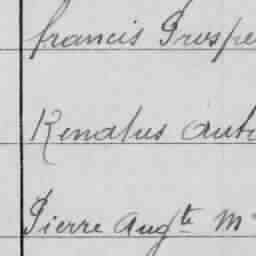 francis Prospe
Renatus Auto
Pierre Augte M